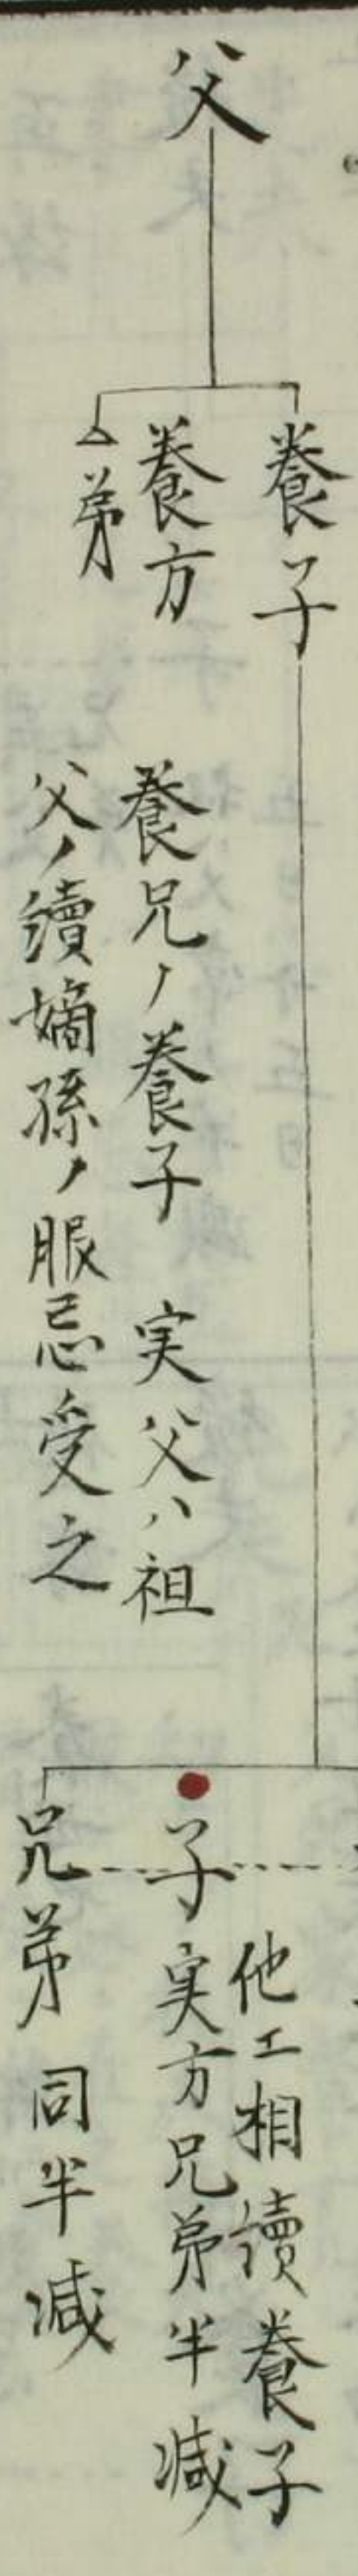 父
養子
養方
△弟
養兄ノ養子 実父ハ祖
父ノ續嫡孫ノ服忌受之
他エ相續養子
子実方兄弟半減
兄弟 同半減